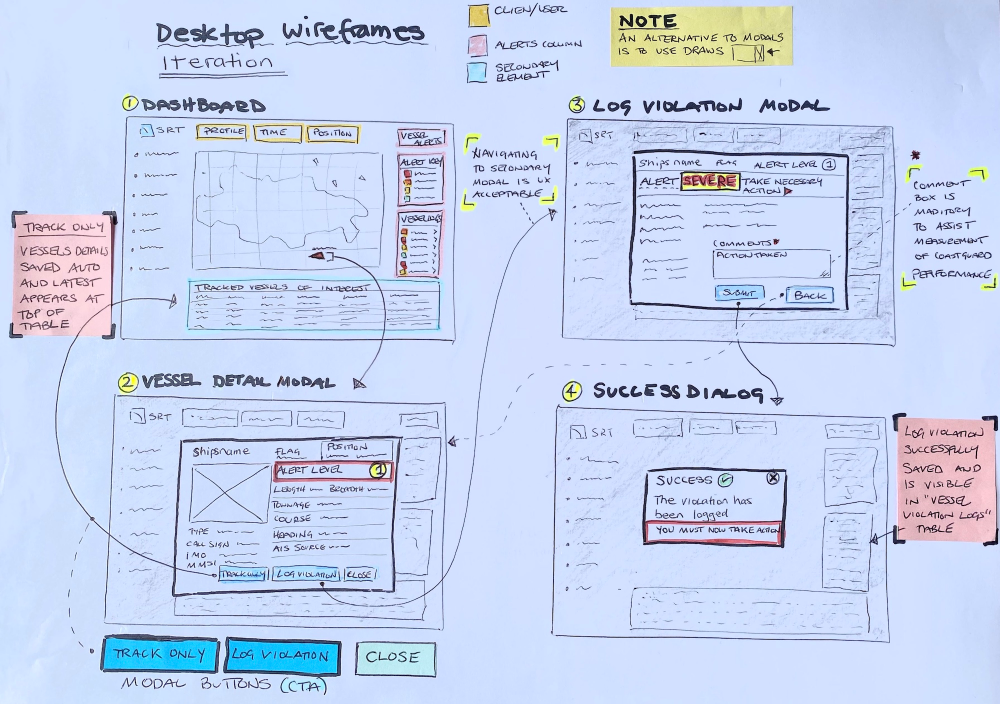 Desktop Wireframes
Iteration
CLIENT/USER
ALERTS COLUMN
SECONDARY
ELEMENT
NOTE
AN ALTERNATIVE TO MODALS
IS TO USE DRAWS
1 DASHBOARD
SRT
PROFILE
TIME
POSITION
VESSEL
ALERTS
ALERT KEY
VESSEL LOGS
TRACKED VESSELS OF INTEREST
NAVIGATING
TO SECONDARY
MODAL IS UX
ACCEPTABLE
TRACK ONLY
VESSELS DETAILS
SAVED AUTO
AND LATEST
APPEARS AT
TOP OF
TABLE
3 LOG VIOLATION MODAL
SRT
Ships name FLAG ALERT LEVEL 1
ALERT SEVERE TAKE NECESSARY
ACTION
COMMENTS*
ACTION TAKEN
SUBMIT
BACK
*
COMMENT
BOX IS
MADITORY
TO ASSIST
MEASUREMENT
OF COASTGUARD
PERFORMANCE
2 VESSEL DETAIL MODAL
SRT
Shipsname
FLAG
POSITION
ALERT LEVEL 1
LENGTH BREADTH
TONNAGE
COURSE
HEADING
AIS SOURCE
TYPE
CALL SIGN
IMO
MMSI
TRACK ONLY
LOG VIOLATION
CLOSE
TRACK ONLY
LOG VIOLATION
CLOSE
MODAL BUTTONS (CTA)
4 SUCCESS DIALOG
SRT
SUCCESS
The violation has
been logged
YOU MUST NOW TAKE ACTION
LOG VIOLATION
SUCCESSFULLY
SAVED AND
IS VISIBLE
IN "VESSEL
VIOLATION LOGS"
TABLE